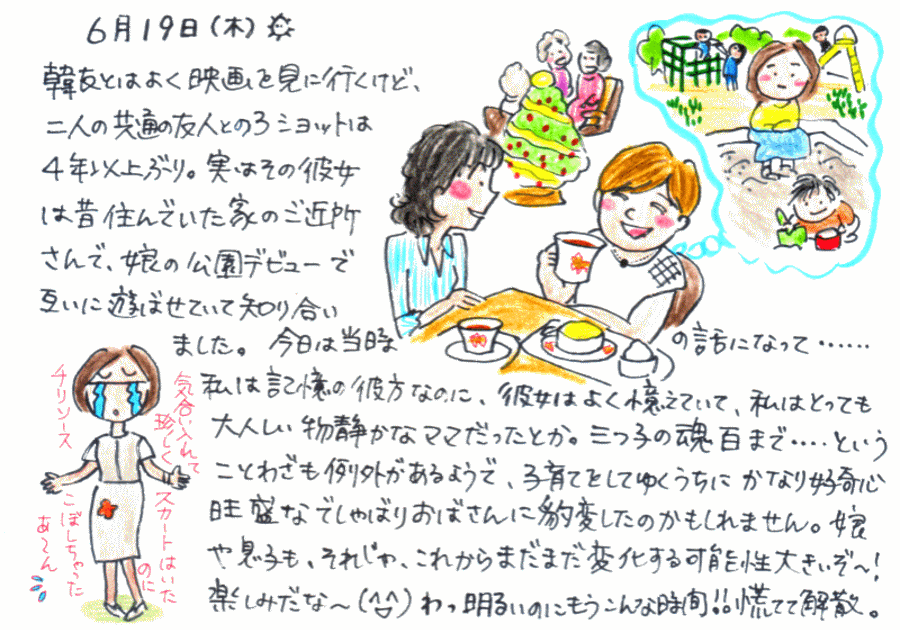 6月19日(木)
韓友とはよく映画を見に行くけど、
二人の共通の友人との3ショットは
4年以上ぶり。実はその彼女
は昔住んでいた家のご近所
さんで、娘の公園デビューで
互いに遊ばせていて知り合い
ました。今日は当時の話になって……
私は記憶の彼方なのに、彼女はよく憶えていて、私はとっても
大人しい物静かなママだったとか。三つ子の魂百まで‥‥という
ことわざも例外があるようで、子育てをしてゆくうちにかなり好奇心
旺盛なでしゃばりおばさんに豹変したのかもしれません。娘
や息子も、それじゃ、これからまだまだ変化する可能性大きいぞ〜!
楽しみだな〜(^▽^)わっ明るいのにもうこんな時間!!慌てて解散。
気合い入れて
珍しく
スカートはいた
のに
チリソース
こぼしちゃった
あ〜ん